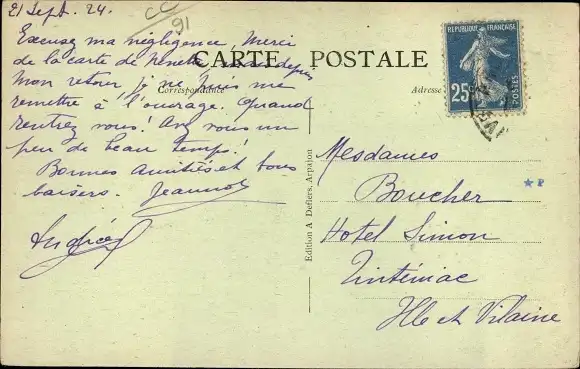 21 Sept. 24.
CC
91
Excusez ma négligence, Merci
de la carte de depuis
mon retour, je ne puis me
remettre à l'ouvrage. Quand
rentrez vous! Avez vous un
peu de beau temps!
Bonnes amitiés et bons
baisers. Jeannot
CARTE POSTALE
Correspondance
Adresse
REPUBLIQUE FRANÇAISE
25c
POSTES
Edition A Defiers, Arpajon
Mesdames
Boucher
Hotel Simon
Tinténiac
Ille et Vilaine
★ P